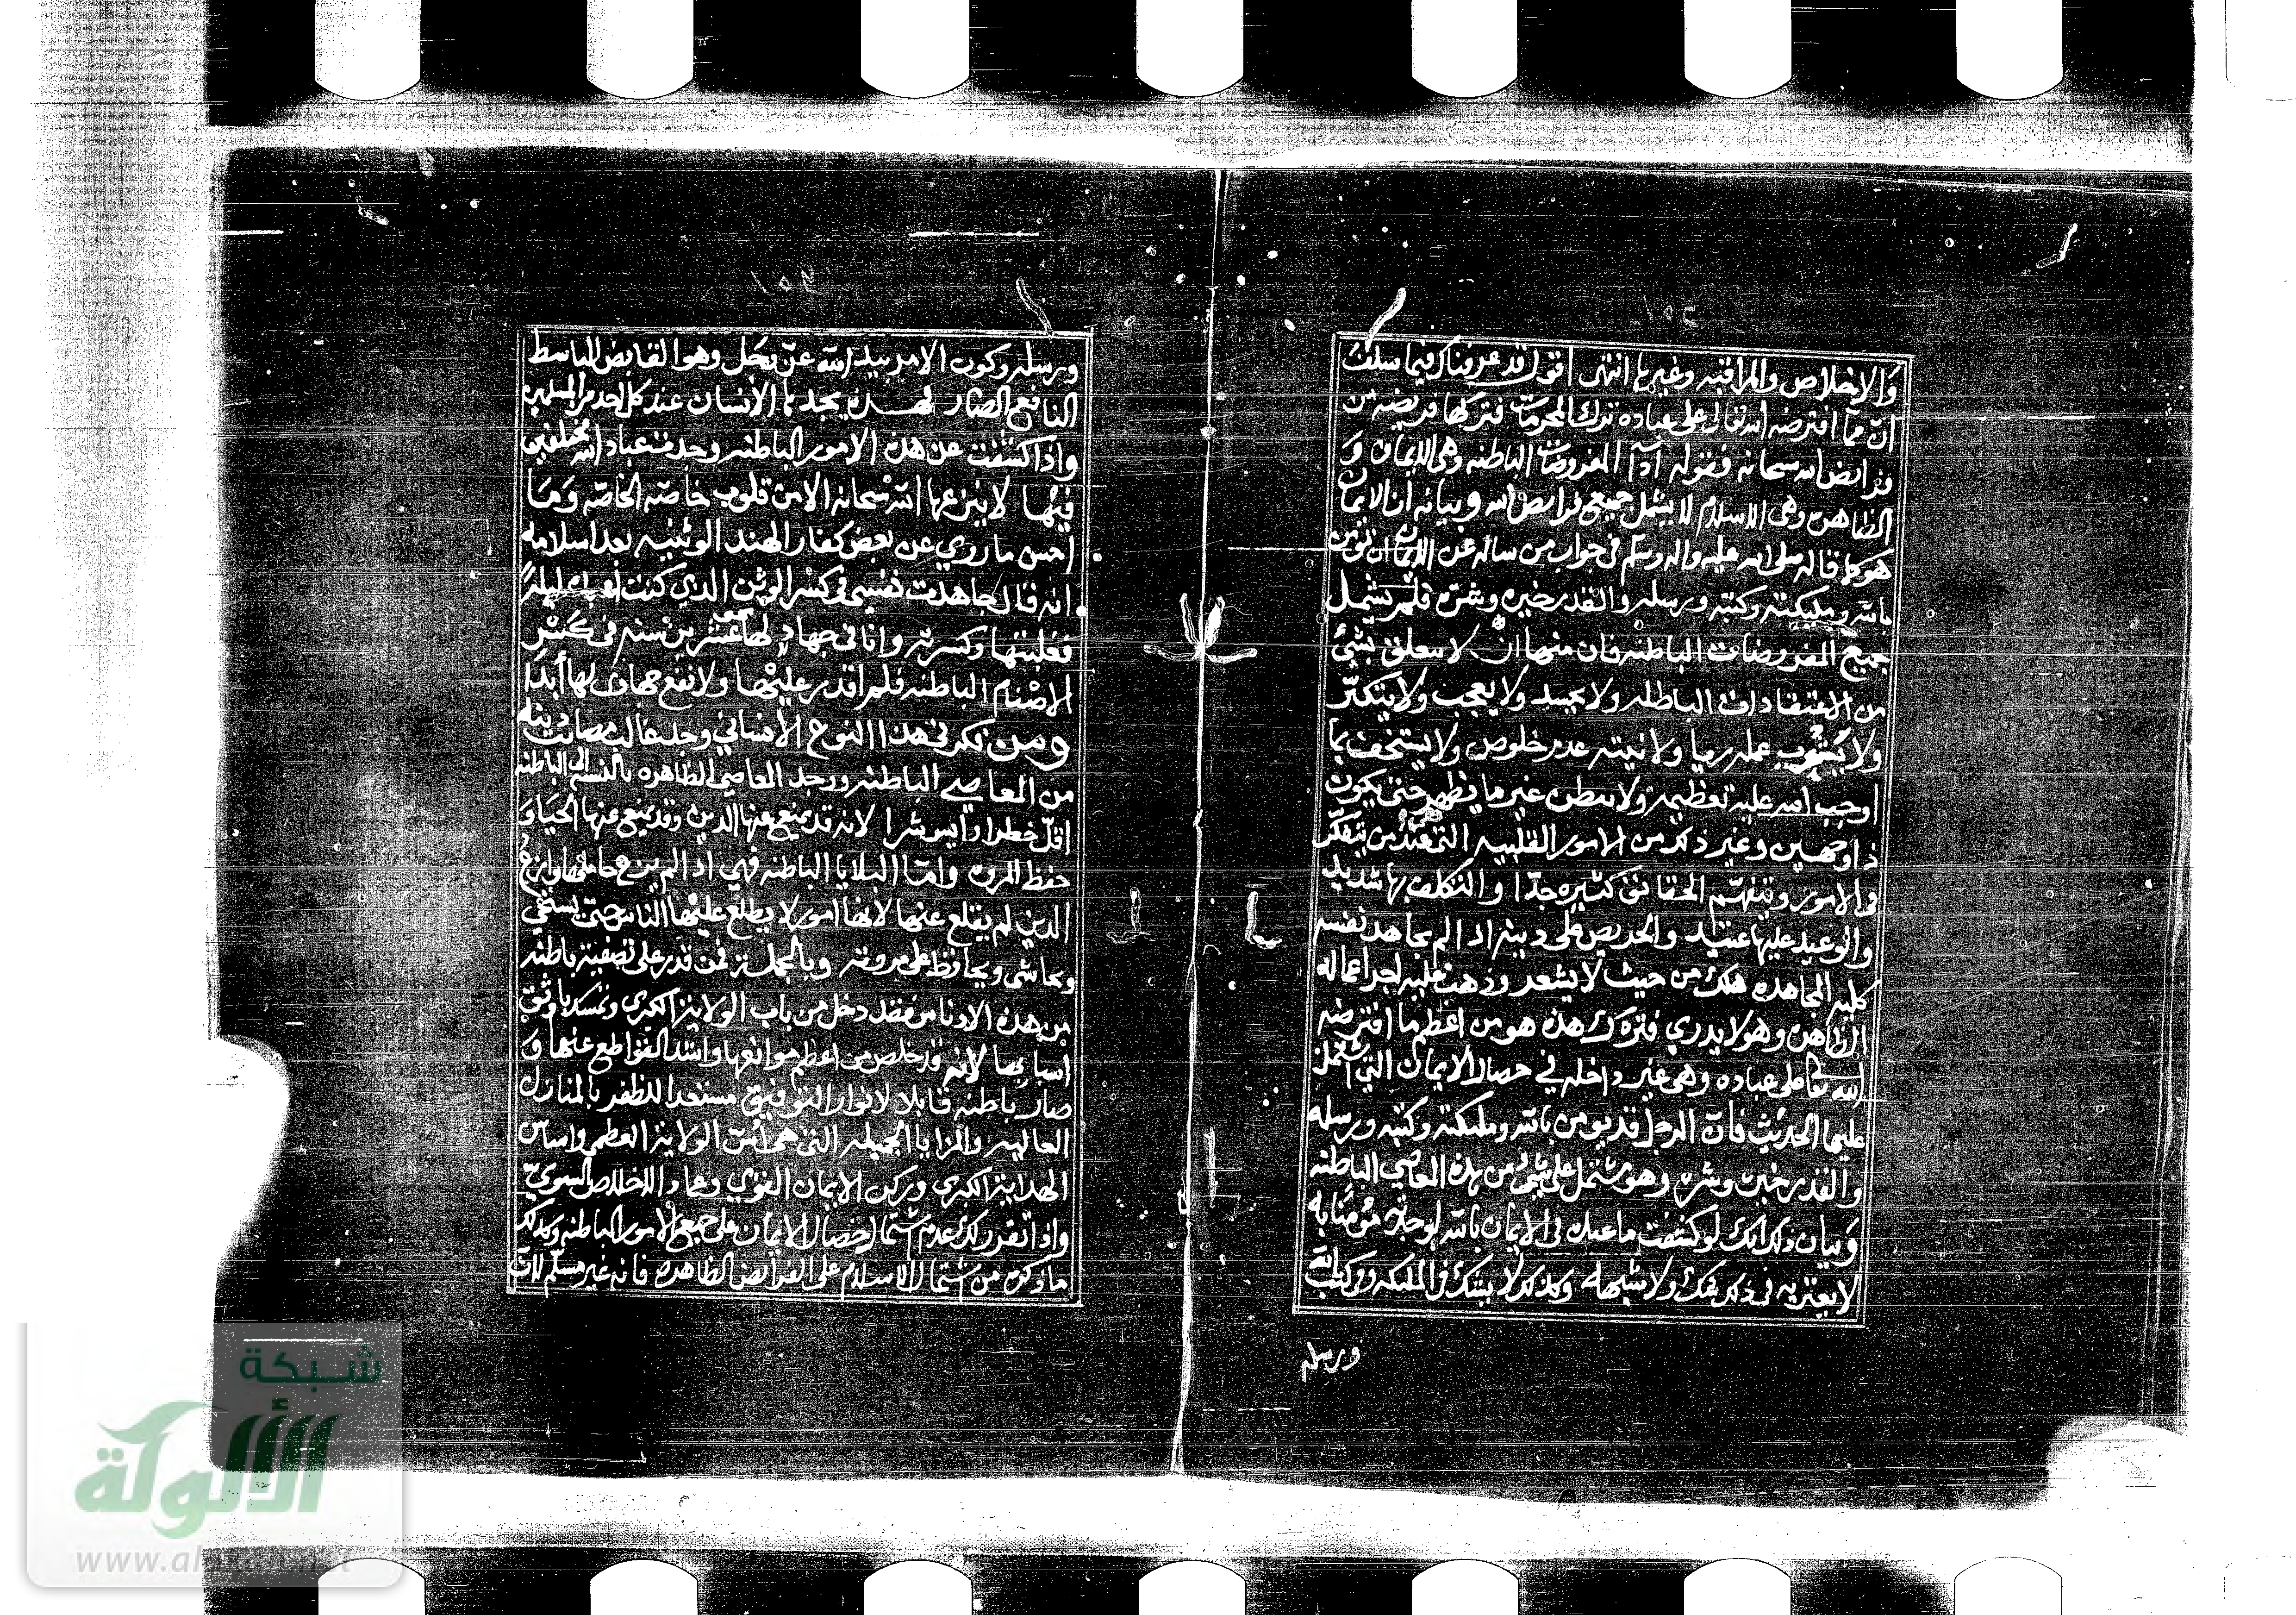 والاخلاص والمراقبه وغيرها انتهى اقول قد عرفناك فيما سلف
ان مما افترضه الله تعالى على عباده ترك المحرمات فتركها فريضه من
فرايض الله سبحانه فقوله ادآ المفروضات الباطنه وهي الايمان و
الظاهره وهي الاسلام لا يشمل جميع فرايض الله وبيانه ان الايمان
هو كما قاله صلى الله عليه واله وسلم في جواب من ساله عن الايمان ان تومن
بالله وملئكته وكتبه ورسله والقدر خيره وشره فلم يشمل
جميع المفروضات الباطنه فان منها ان لا يتعلق بشئ
من الاعتقادات الباطله ولا يحسد ولا يعجب ولا يتكبر
ولا يشوب عمله ريا ولا نيته عدم خلوص ولا يستخف بما
اوجب الله عليه تعظيمه ولا يبطن غير ما يظهر حتى يكون
ذا وجهين وغير ذلك من الامور القلبيه التي عند من يتفكر
في الامور ويتفهم الحقائق كثيره جدا والتكليف بها شديد
والوعيد عليها عتيد والحريص على دينه اذا لم يجاهد نفسه
كليه المجاهده هلك من حيث لا يشعر وذهبت عليه اجر اعماله
الظاهره وهو لا يدري فترك هذه هو من اعظم ما افترضه
الله تعالى على عباده وهي غير داخله في خصال الايمان التي اشتمل
عليها الحديث فان الرجل قد يومن بالله وملئكته وكتبه ورسله
والقدر خيره وشره وهو مشتمل على شئ من هذه المعاصي الباطنه
وبيان ذلك انك لو كشفت ما عنده في الايمان بالله لوجدته مؤمنا به
لا يعتريه في ذلك شك ولا شبهه وكذلك لا يشك في الملئكه وفي كتب الله
ورسله
ورسله وكون الامر بيد الله عز وجل وهو القابض الباسط
النافع الضار يجدها الانسان عند كل احد من المسلمين
واذا كشفت عن هذه الامور الباطنه وجدت عباد الله مختلفين
فيها لا ينزعها الله سبحانه الا من قلوب خاصه الخاصه وما
احسن ما روي عن بعض كفار الهند الوثنيه بعد اسلامه
انه قال جاهدت نفسي في كسر الوثن الذي كنت اعبده ليلةً
فغلبتها وكسرته وانا في جهاد لها عشرين سنه في كسر
الاصنام الباطنه فلم اقدر عليها ولا نفع جهادي لها أبدا
ومن فكر في هذا النوع الانساني وجد غالب مصايب دينه
من المعاصي الباطنه ووجد المعاصي الظاهره بالنسبه الى الباطنه
اقل خطرا وأيسر شرا لانه قد يمنع عنها الدين وقد يمنع عنها الحياء و
حفظ المروه وامّا البلايا الباطنه فهي اذا لم يزع حاملها وازع
الدين لم يقلع عنها لانها امور لا يطلع عليها الناس حتى يستحي
ويحاشى ويحافظ على مروته وبالجملة فمن قدر على تصفية باطنه
من هذه الادناس فقد دخل من باب الولاية الكبرى وتمسك باوثق
اسبابها لانه قد خلص من اعظم موانعها واشد القواطع عنها و
صار باطنه قابلا لانوار التوفيق مستعدا للظفر بالمنازل
العاليه والمزايا الجميله التي هي اسّ الولاية العظمى واساس
الهداية الكبرى وركن الايمان القوي وعماد الاخلاص السويّ
واذا تقرر لك عدم اشتمال خصال الايمان على جميع الامور الباطنه وكذلك
ما ذكره من اشتمال الاسلام على الفرايض الظاهره فانه غير مسلم لان
شبكة
الألوكة
www.alukah.net